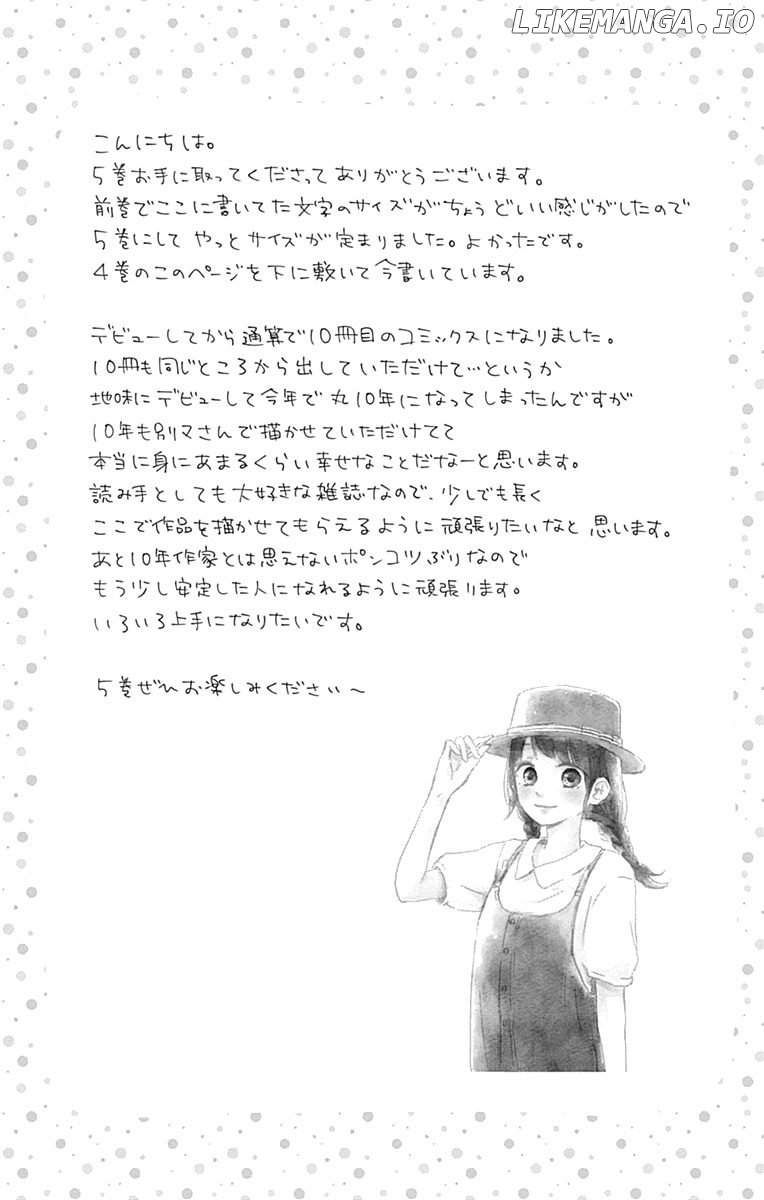 LIKEMANGA.IO
こんにちは。
5巻お手に取ってくださってありがとうございます。
前巻でここに書いてた文字のサイズがちょうどいい感じがしたので
5巻にして やっとサイズが定まりました。よかったです。
4巻のこのページを下に敷いて今書いています。
デビューしてから通算で10冊目のコミックスになりました。
10冊も同じところから出していただけて…というか
地味にデビューして今年で丸10年になってしまったんですが
10年も別マさんで描かせていただけてて
本当に身にあまるくらい幸せなことだなーと思います。
読み手としても大好きな雑誌なので、少しでも長く
ここで作品を描かせてもらえるように頑張りたいなと思います。
あと10年作家とは思えないポンコツぶりなので
もう少し安定した人になれるように頑張ります。
いろいろ上手になりたいです。
5巻ぜひお楽しみください〜